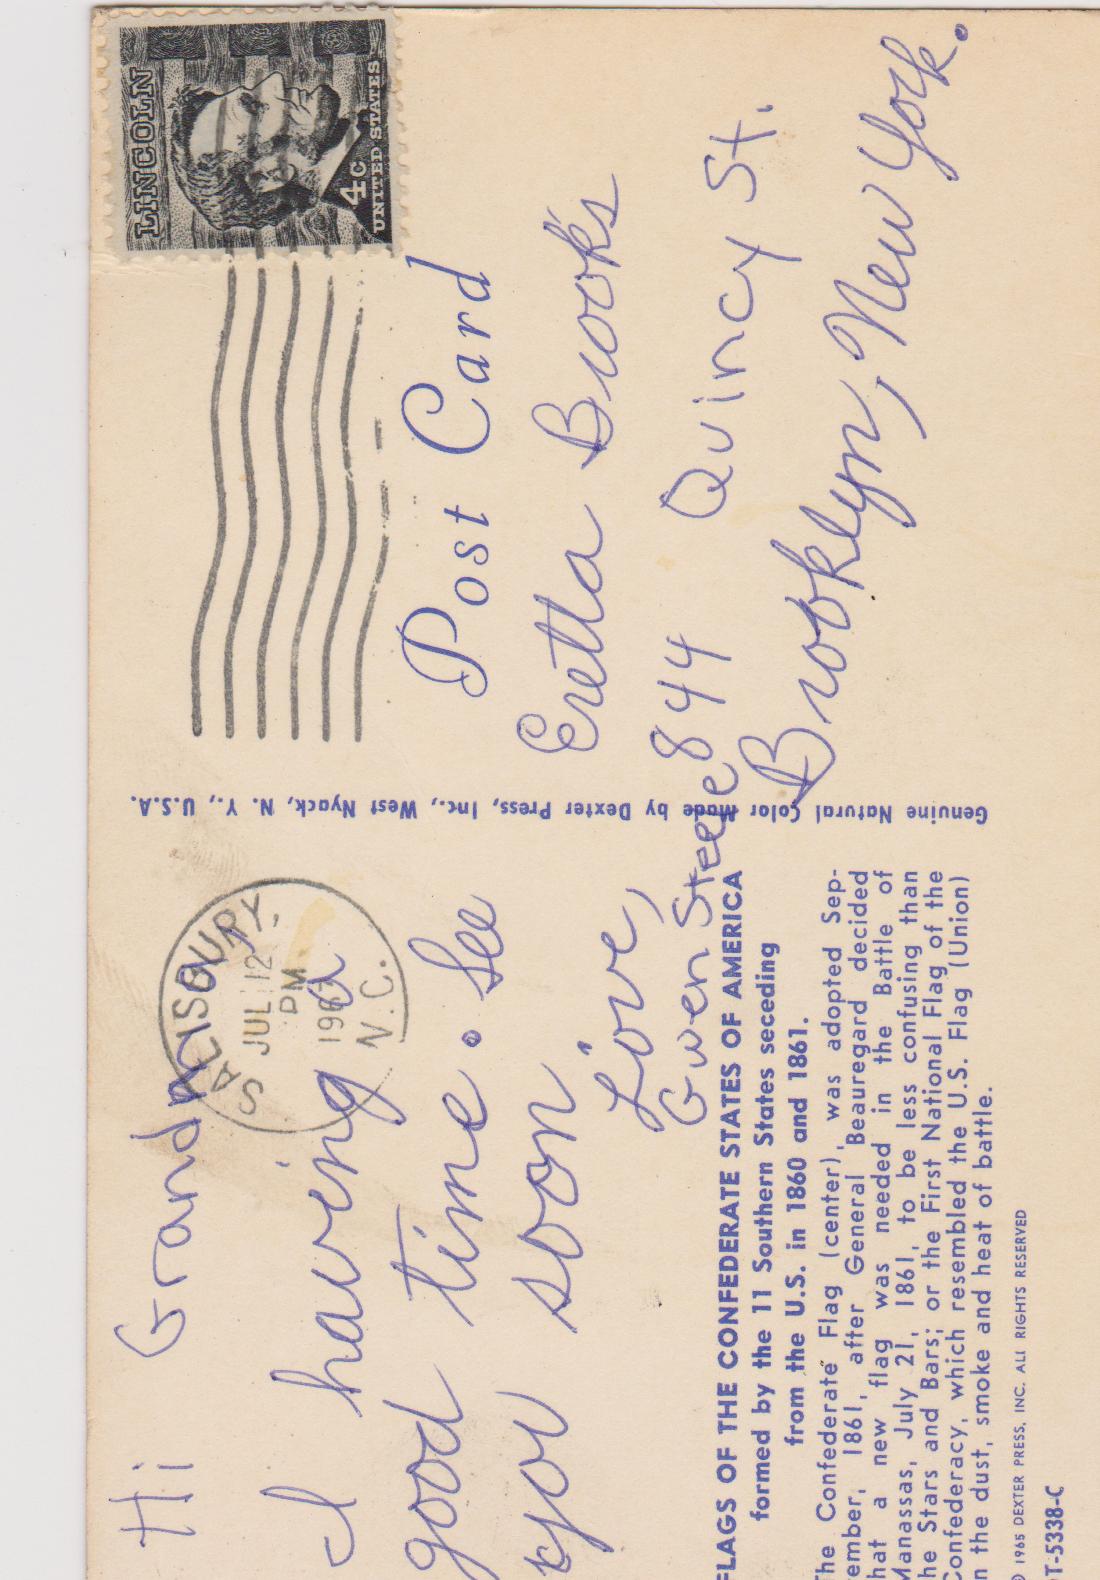 Hi Grandma
I having a
good time. See
you soon
Love,
Gwen Steele
SALISBURY,
JUL 12
PM
N.C.
LINCOLN
4c
UNITED STATES
Post Card
Eretta Brooks
844 Quincy St.
Brooklyn, New York.
Genuine Natural Color Made by Dexter Press, Inc., West Nyack, N. Y., U.S.A.
FLAGS OF THE CONFEDERATE STATES OF AMERICA
formed by the 11 Southern States seceding
from the U.S. in 1860 and 1861.
The Confederate Flag (center), was adopted Sep-
ember, 1861, after General Beauregard decided
hat a new flag was needed in the Battle of
Manassas, July 21, 1861, to be less confusing than
he Stars and Bars; or the First National Flag of the
Confederacy, which resembled the U.S. Flag (Union)
n the dust, smoke and heat of battle.
© 1965 DEXTER PRESS, INC. ALL RIGHTS RESERVED
DT-5338-C